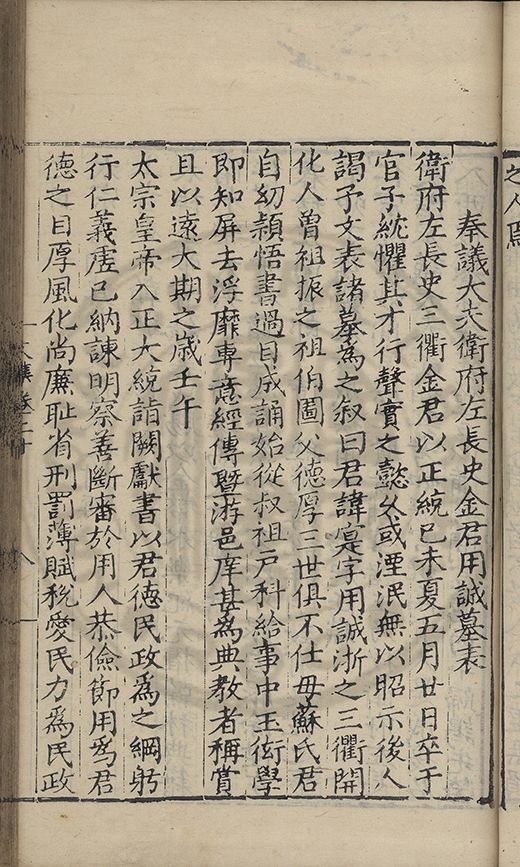 之人焉
奉議大夫衛府左長史金君用誠墓表
衛府左長史三衢金君以正統已未夏五月廿日卒于
官子紞懼其才行聲實之懿久或湮泯無以昭示後人
謁予文表諸墓為之叙曰君諱寔字用誠浙之三衢開
化人曾祖振之祖伯圖父德厚三世俱不仕母蘇氏君
自幼穎悟書過目成誦始從叔祖戶科給事中玉衒學
即知屏去浮靡專意經傳暨游邑庠甚為典教者稱賞
且以遠大期之歲壬午
太宗皇帝入正大統詣闕獻書以君德民政為之綱躬
行仁義虚已納諫明察善斷審於用人恭儉節用為君
德之目厚風化尚廉耻省刑罰薄賦稅愛民力為民政
文集卷二十